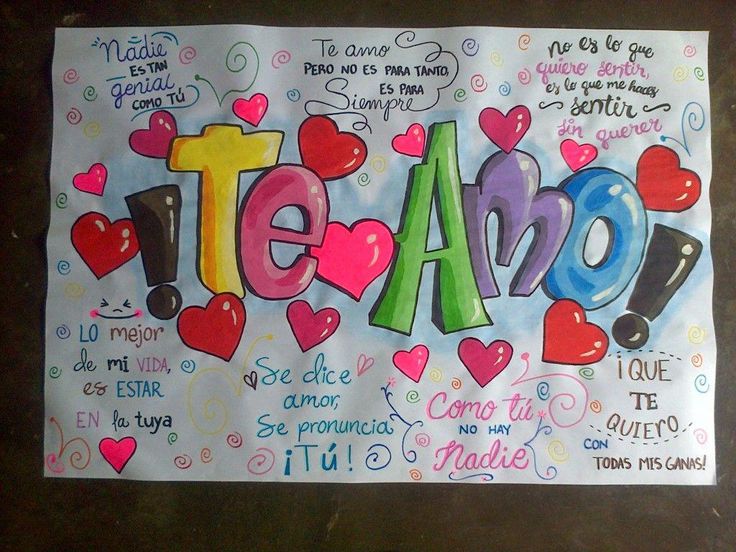 Nadie
ES TAN
genial
COMO TÚ
Te amo
PERO NO ES PARA TANTO,
ES PARA
Siempre
No es lo que
quiero sentir,
es lo que me haces
sentir
sin querer
¡TE AMO!
LO mejor
de mi VIDA,
es ESTAR
EN la tuya
Se dice
amor,
Se pronuncia
¡TÚ!
Como tú
NO HAY
Nadie
¡QUE
TE
QUIERO
CON
TODAS MIS GANAS!